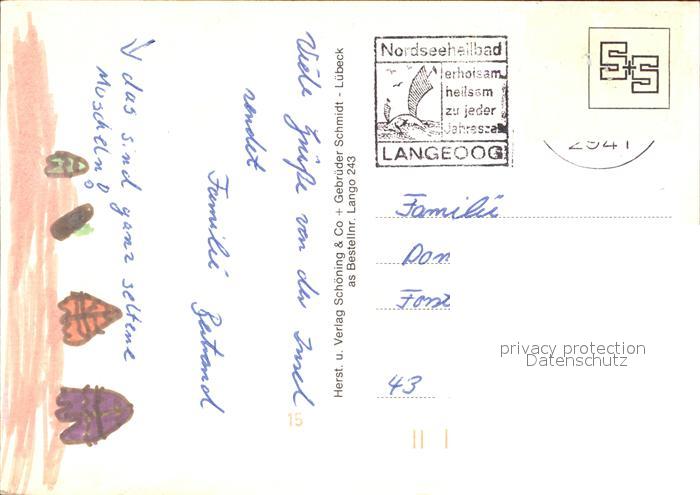 Viele Grüße von der Insel
sendet
Familie Bertrand
↓ das sind ganz seltene
Muscheln!
Herst. u. Verlag Schöning & Co + Gebrüder Schmidt - Lübeck
as Bestellnr. Lango 243
Nordseeheilbad
erholsam
heilsam
zu jeder
Jahresze
LANGEOOG
S+S
2941
Familie
Don
43
privacy protection
Datenschutz
15